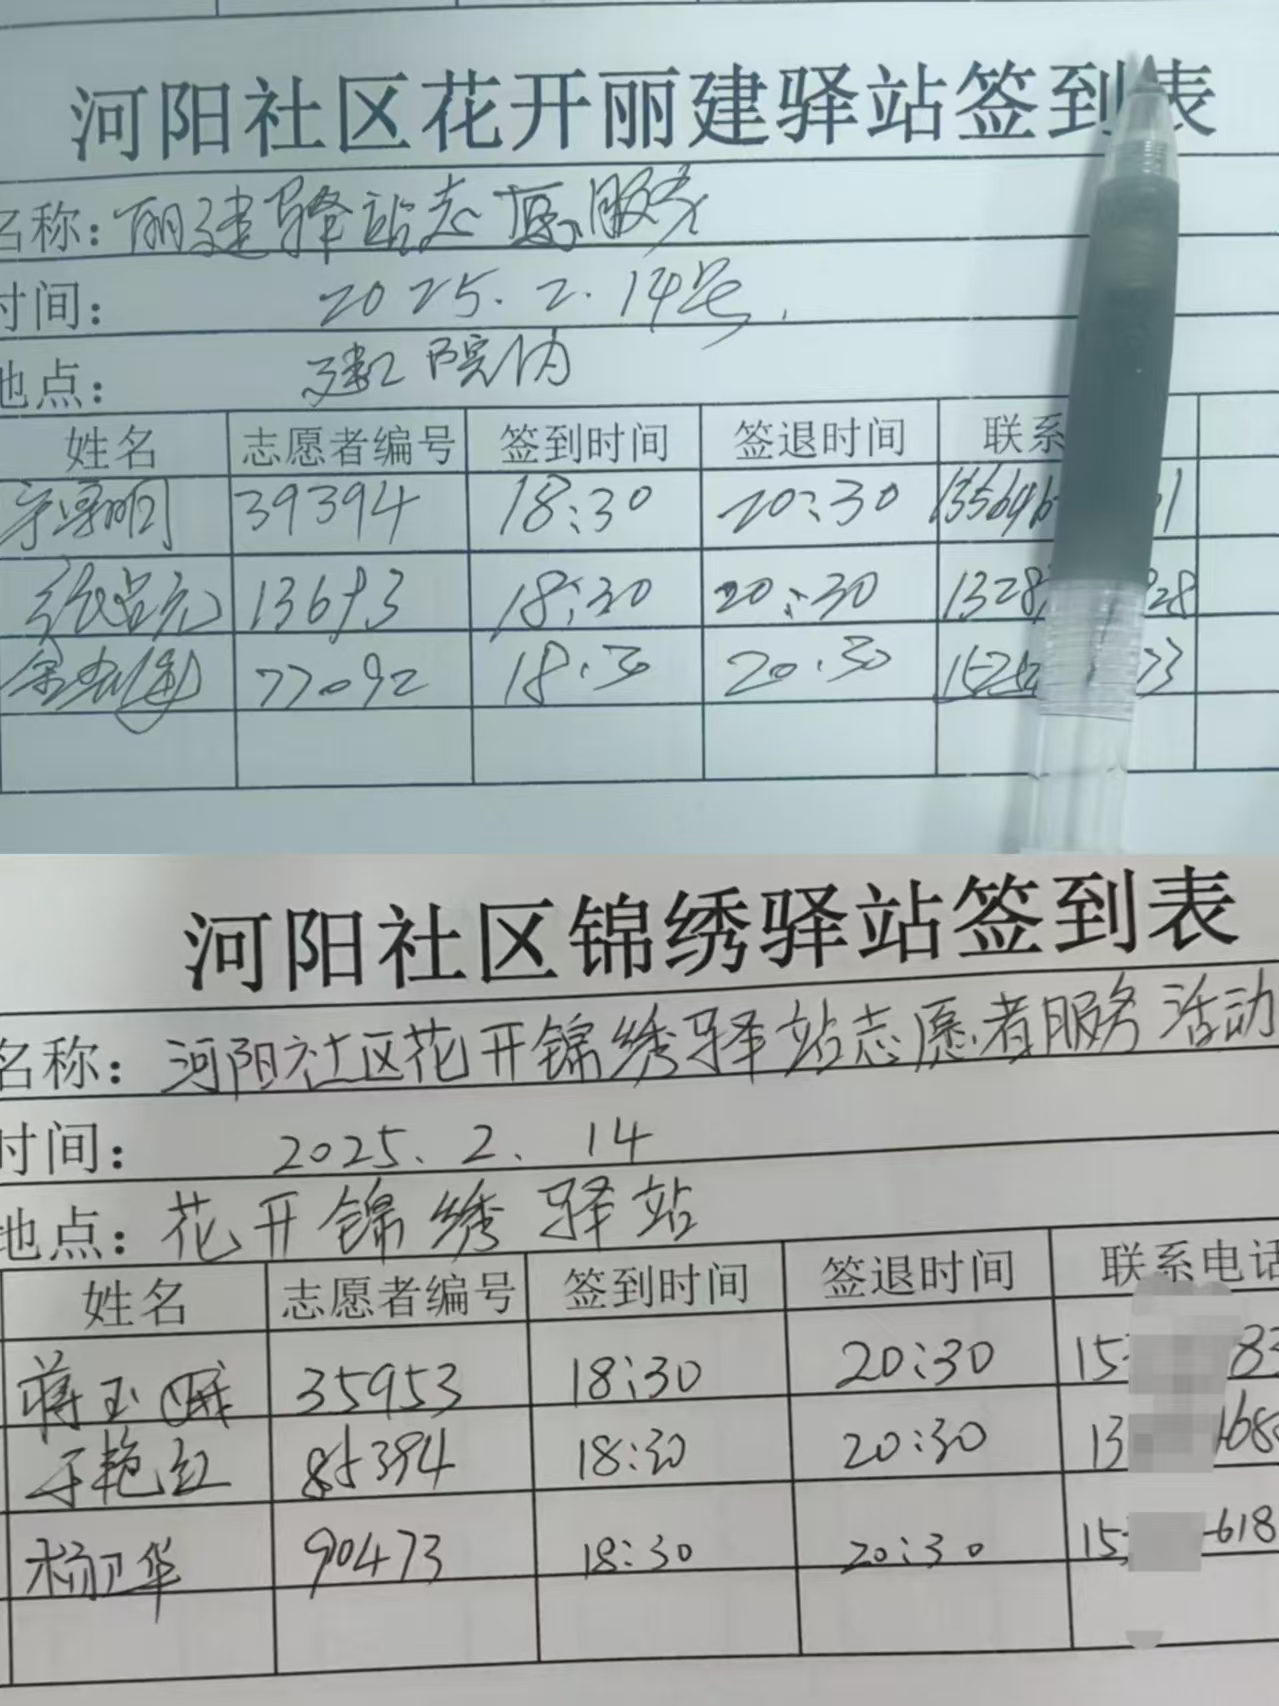 河阳社区花开丽建驿站签到表
名称：丽建驿站志愿服务
时间： 2025.2.14号.
地点： 建院内
姓名 志愿者编号 签到时间 签退时间 联系
39394 18:30 20:30
张昌元 13693 18:30 20:30
77092 18:30 20:30
河阳社区锦绣驿站签到表
名称：河阳社区花开锦绣驿站志愿者服务活动
时间： 2025.2.14
地点：花开锦绣驿站
姓名 志愿者编号 签到时间 签退时间 联系电话
蒋玉娥 35953 18:30 20:30 15 83
于艳红 85394 18:30 20:30 13 168
杨卫华 90473 18:30 20:30 15 618